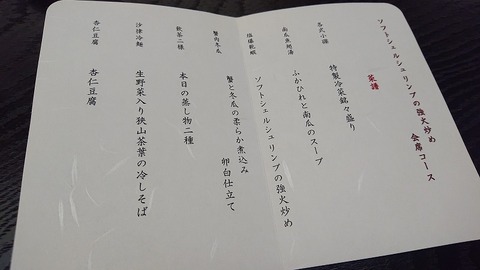 ソフトシェルシュリンプの強火炒め
会席コース
菜譜
各式小碟
特製冷菜銘々盛り
南瓜魚翅湯
ふかひれと南瓜のスープ
塩爆軟蝦
ソフトシェルシュリンプの強火炒め
蟹肉冬瓜
蟹と冬瓜の柔らか煮込み
卵白仕立て
飲茶二種
本日の蒸し物二種
沙律冷麺
生野菜入り狭山茶葉の冷しそば
杏仁豆腐
杏仁豆腐